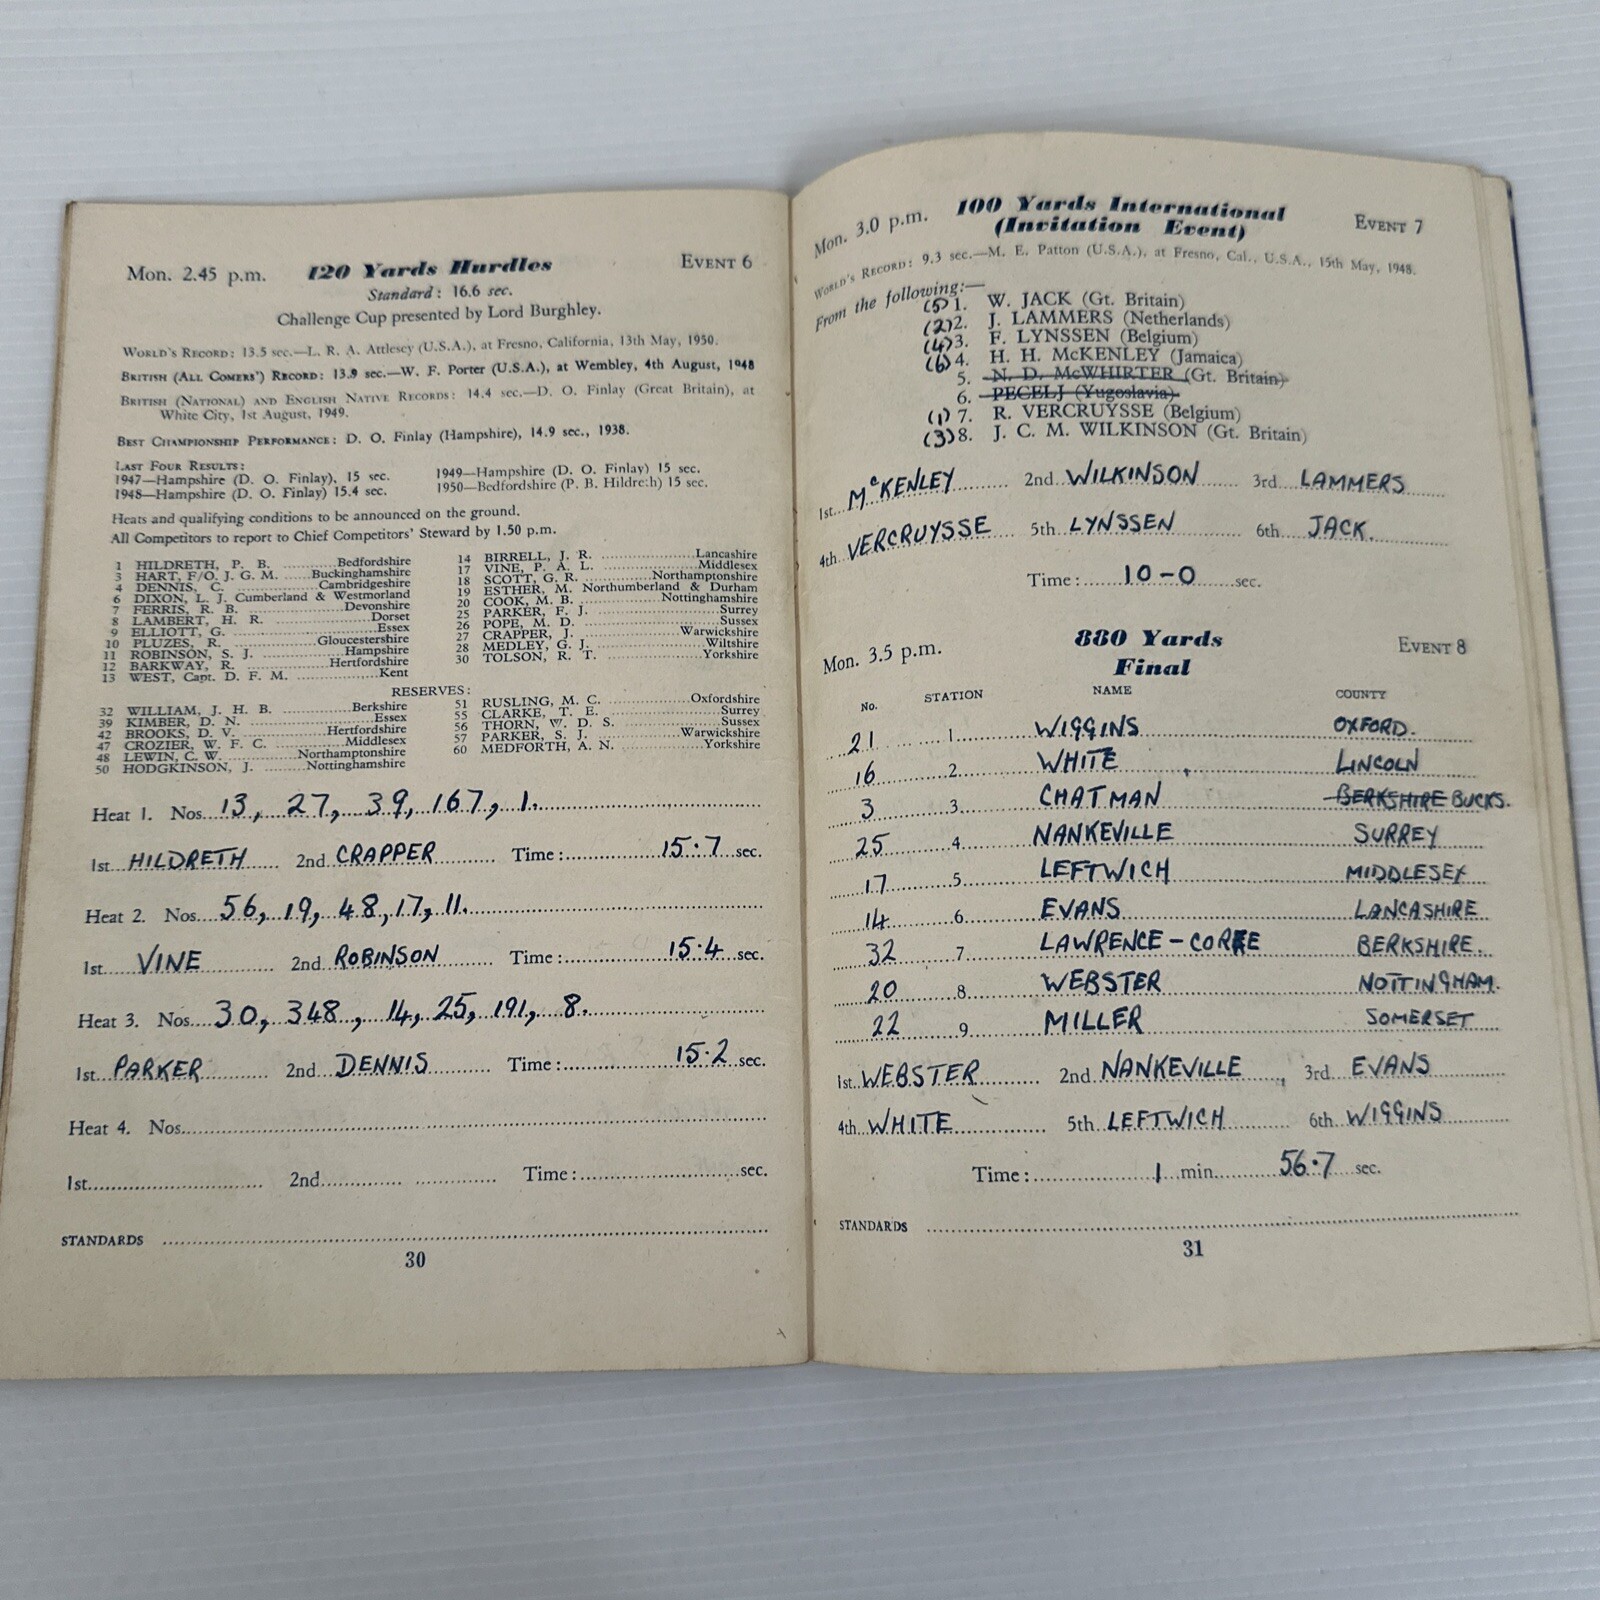 Mon. 2.45 p.m. 120 Yards Hurdles EVENT 6
Standard: 16.6 sec.
Challenge Cup presented by Lord Burghley.
WORLD'S RECORD: 13.5 sec.—L. R. A. Attlesey (U.S.A.), at Fresno, California, 13th May, 1950.
BRITISH (ALL COMERS') RECORD: 13.9 sec.—W. F. Porter (U.S.A.), at Wembley, 4th August, 1948
BRITISH (NATIONAL) AND ENGLISH NATIVE RECORDS: 14.4 sec.—D. O. Finlay (Great Britain), at
White City, 1st August, 1949.
BEST CHAMPIONSHIP PERFORMANCE: D. O. Finlay (Hampshire), 14.9 sec., 1938.
LAST FOUR RESULTS:
1947—Hampshire (D. O. Finlay), 15 sec. 1949—Hampshire (D. O. Finlay) 15 sec.
1948—Hampshire (D. O. Finlay) 15.4 sec. 1950—Bedfordshire (P. B. Hildreth) 15 sec.
Heats and qualifying conditions to be announced on the ground.
All Competitors to report to Chief Competitors' Steward by 1.50 p.m.
1 HILDRETH, P. B. Bedfordshire
3 HART, F/O. J. G. M. Buckinghamshire
4 DENNIS, C. Cambridgeshire
6 DIXON, L. J. Cumberland & Westmorland
7 FERRIS, R. B. Devonshire
8 LAMBERT, H. R. Dorset
9 ELLIOTT, G. Essex
10 PLUZES, R. Gloucestershire
11 ROBINSON, S. J. Hampshire
12 BARKWAY, R. Hertfordshire
13 WEST, Capt. D. F. M. Kent
14 BIRRELL, J. R. Lancashire
17 VINE, P. A. L. Middlesex
18 SCOTT, G. R. Northamptonshire
19 ESTHER, M. Northumberland & Durham
20 COOK, M. B. Nottinghamshire
25 PARKER, F. J. Surrey
26 POPE, M. D. Sussex
27 CRAPPER, J. Warwickshire
28 MEDLEY, G. J. Wiltshire
30 TOLSON, R. T. Yorkshire
RESERVES:
32 WILLIAM, J. H. B. Berkshire
39 KIMBER, D. N. Essex
42 BROOKS, D. V. Hertfordshire
47 CROZIER, W. F. C. Middlesex
48 LEWIN, C. W. Northamptonshire
50 HODGKINSON, J. Nottinghamshire
51 RUSLING, M. C. Oxfordshire
55 CLARKE, T. E. Surrey
56 THORN, W. D. S. Sussex
57 PARKER, S. J. Warwickshire
60 MEDFORTH, A. N. Yorkshire
Heat 1. Nos. 13, 27, 39, 167, 1.
1st HILDRETH 2nd CRAPPER Time: 15.7 sec.
Heat 2. Nos. 56, 19, 48, 17, 11.
1st VINE 2nd ROBINSON Time: 15.4 sec.
Heat 3. Nos. 30, 348, 14, 25, 191, 8.
1st PARKER 2nd DENNIS Time: 15.2 sec.
Heat 4. Nos.
1st 2nd Time: sec.
STANDARDS
30
Mon. 3.0 p.m. 100 Yards International EVENT 7
(Invitation Event)
WORLD'S RECORD: 9.3 sec.—M. E. Patton (U.S.A.), at Fresno, Cal., U.S.A., 15th May, 1948.
From the following:—
(5) 1. W. JACK (Gt. Britain)
(2) 2. J. LAMMERS (Netherlands)
(4) 3. F. LYNSSEN (Belgium)
(6) 4. H. H. McKENLEY (Jamaica)
5. N. D. McWHIRTER (Gt. Britain)
6. PECELJ (Yugoslavia)
(1) 7. R. VERCRUYSSE (Belgium)
(3) 8. J. C. M. WILKINSON (Gt. Britain)
1st McKENLEY 2nd WILKINSON 3rd LAMMERS
4th VERCRUYSSE 5th LYNSSEN 6th JACK.
Time: 10-0 sec.
Mon. 3.5 p.m. 880 Yards EVENT 8
Final
No. STATION NAME COUNTY
21 1. WIGGINS OXFORD.
16 2. WHITE LINCOLN
3 3. CHATMAN BERKSHIRE BUCKS.
25 4. NANKEVILLE SURREY
17 5. LEFTWICH MIDDLESEX
14 6. EVANS LANCASHIRE
32 7. LAWRENCE-CORRE BERKSHIRE.
20 8. WEBSTER NOTTINGHAM.
22 9. MILLER SOMERSET
1st WEBSTER 2nd NANKEVILLE, 3rd EVANS
4th WHITE 5th LEFTWICH 6th WIGGINS
Time: 1 min. 56.7 sec.
STANDARDS
31